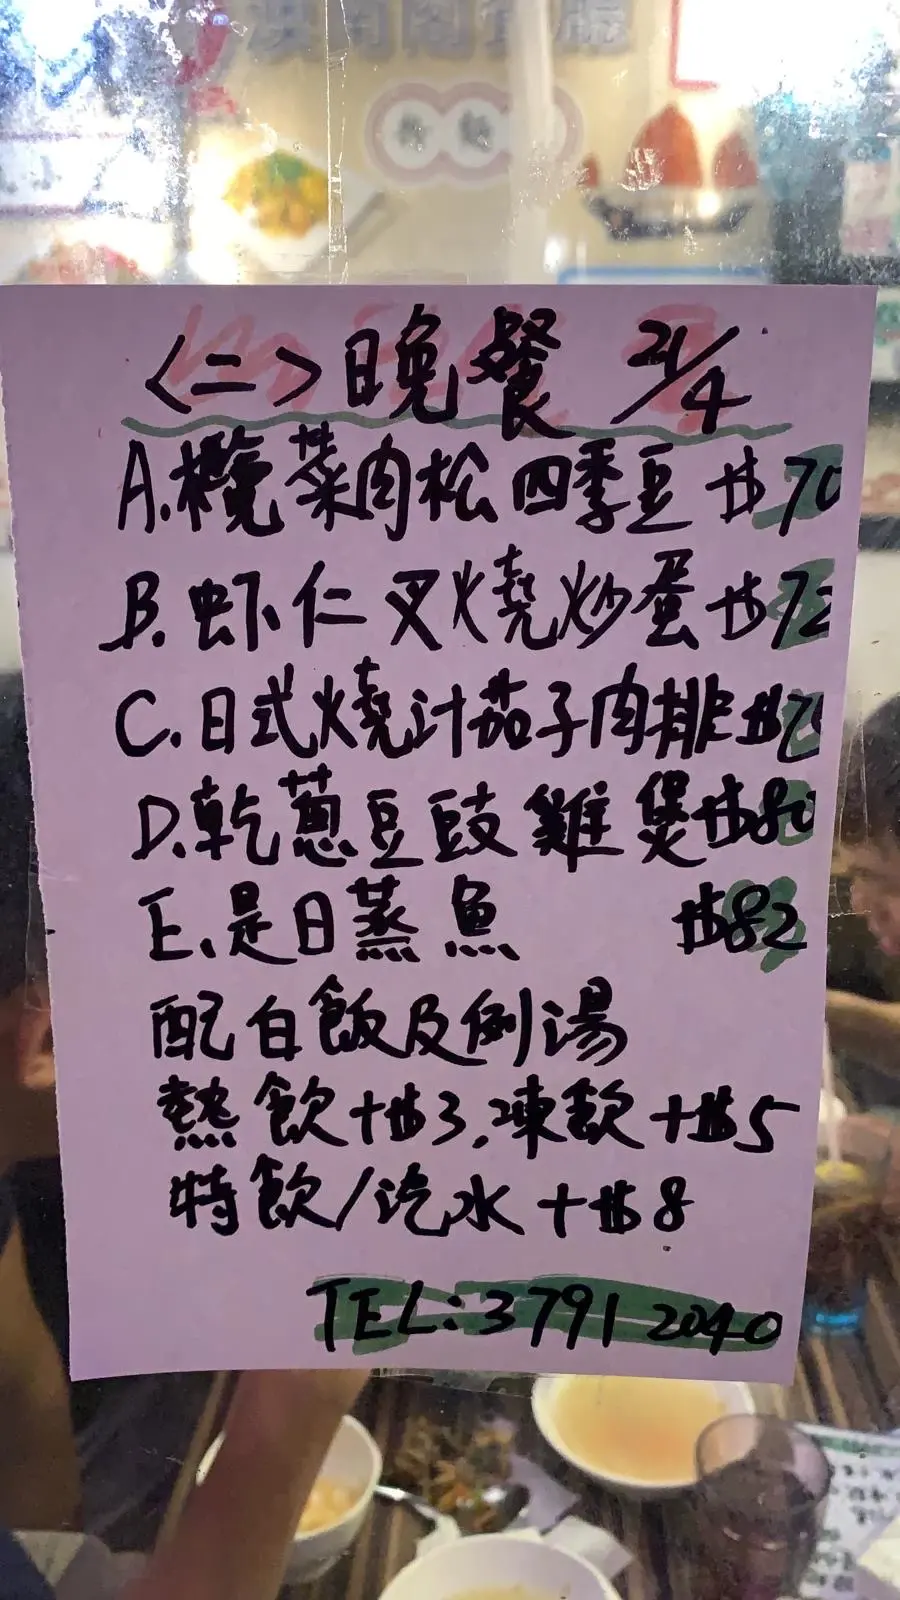 餐廳
<二>晚餐 21/4
A.欖菜肉松四季豆 $70
B.虾仁叉燒炒蛋 $72
C.日式燒汁茄子肉排
D.乾蔥豆豉雞煲 $80
E.是日蒸魚 $82
配白飯及例湯
熱飲+$3,凍飲+$5
特飲/汽水+$8
TEL:3791 2040